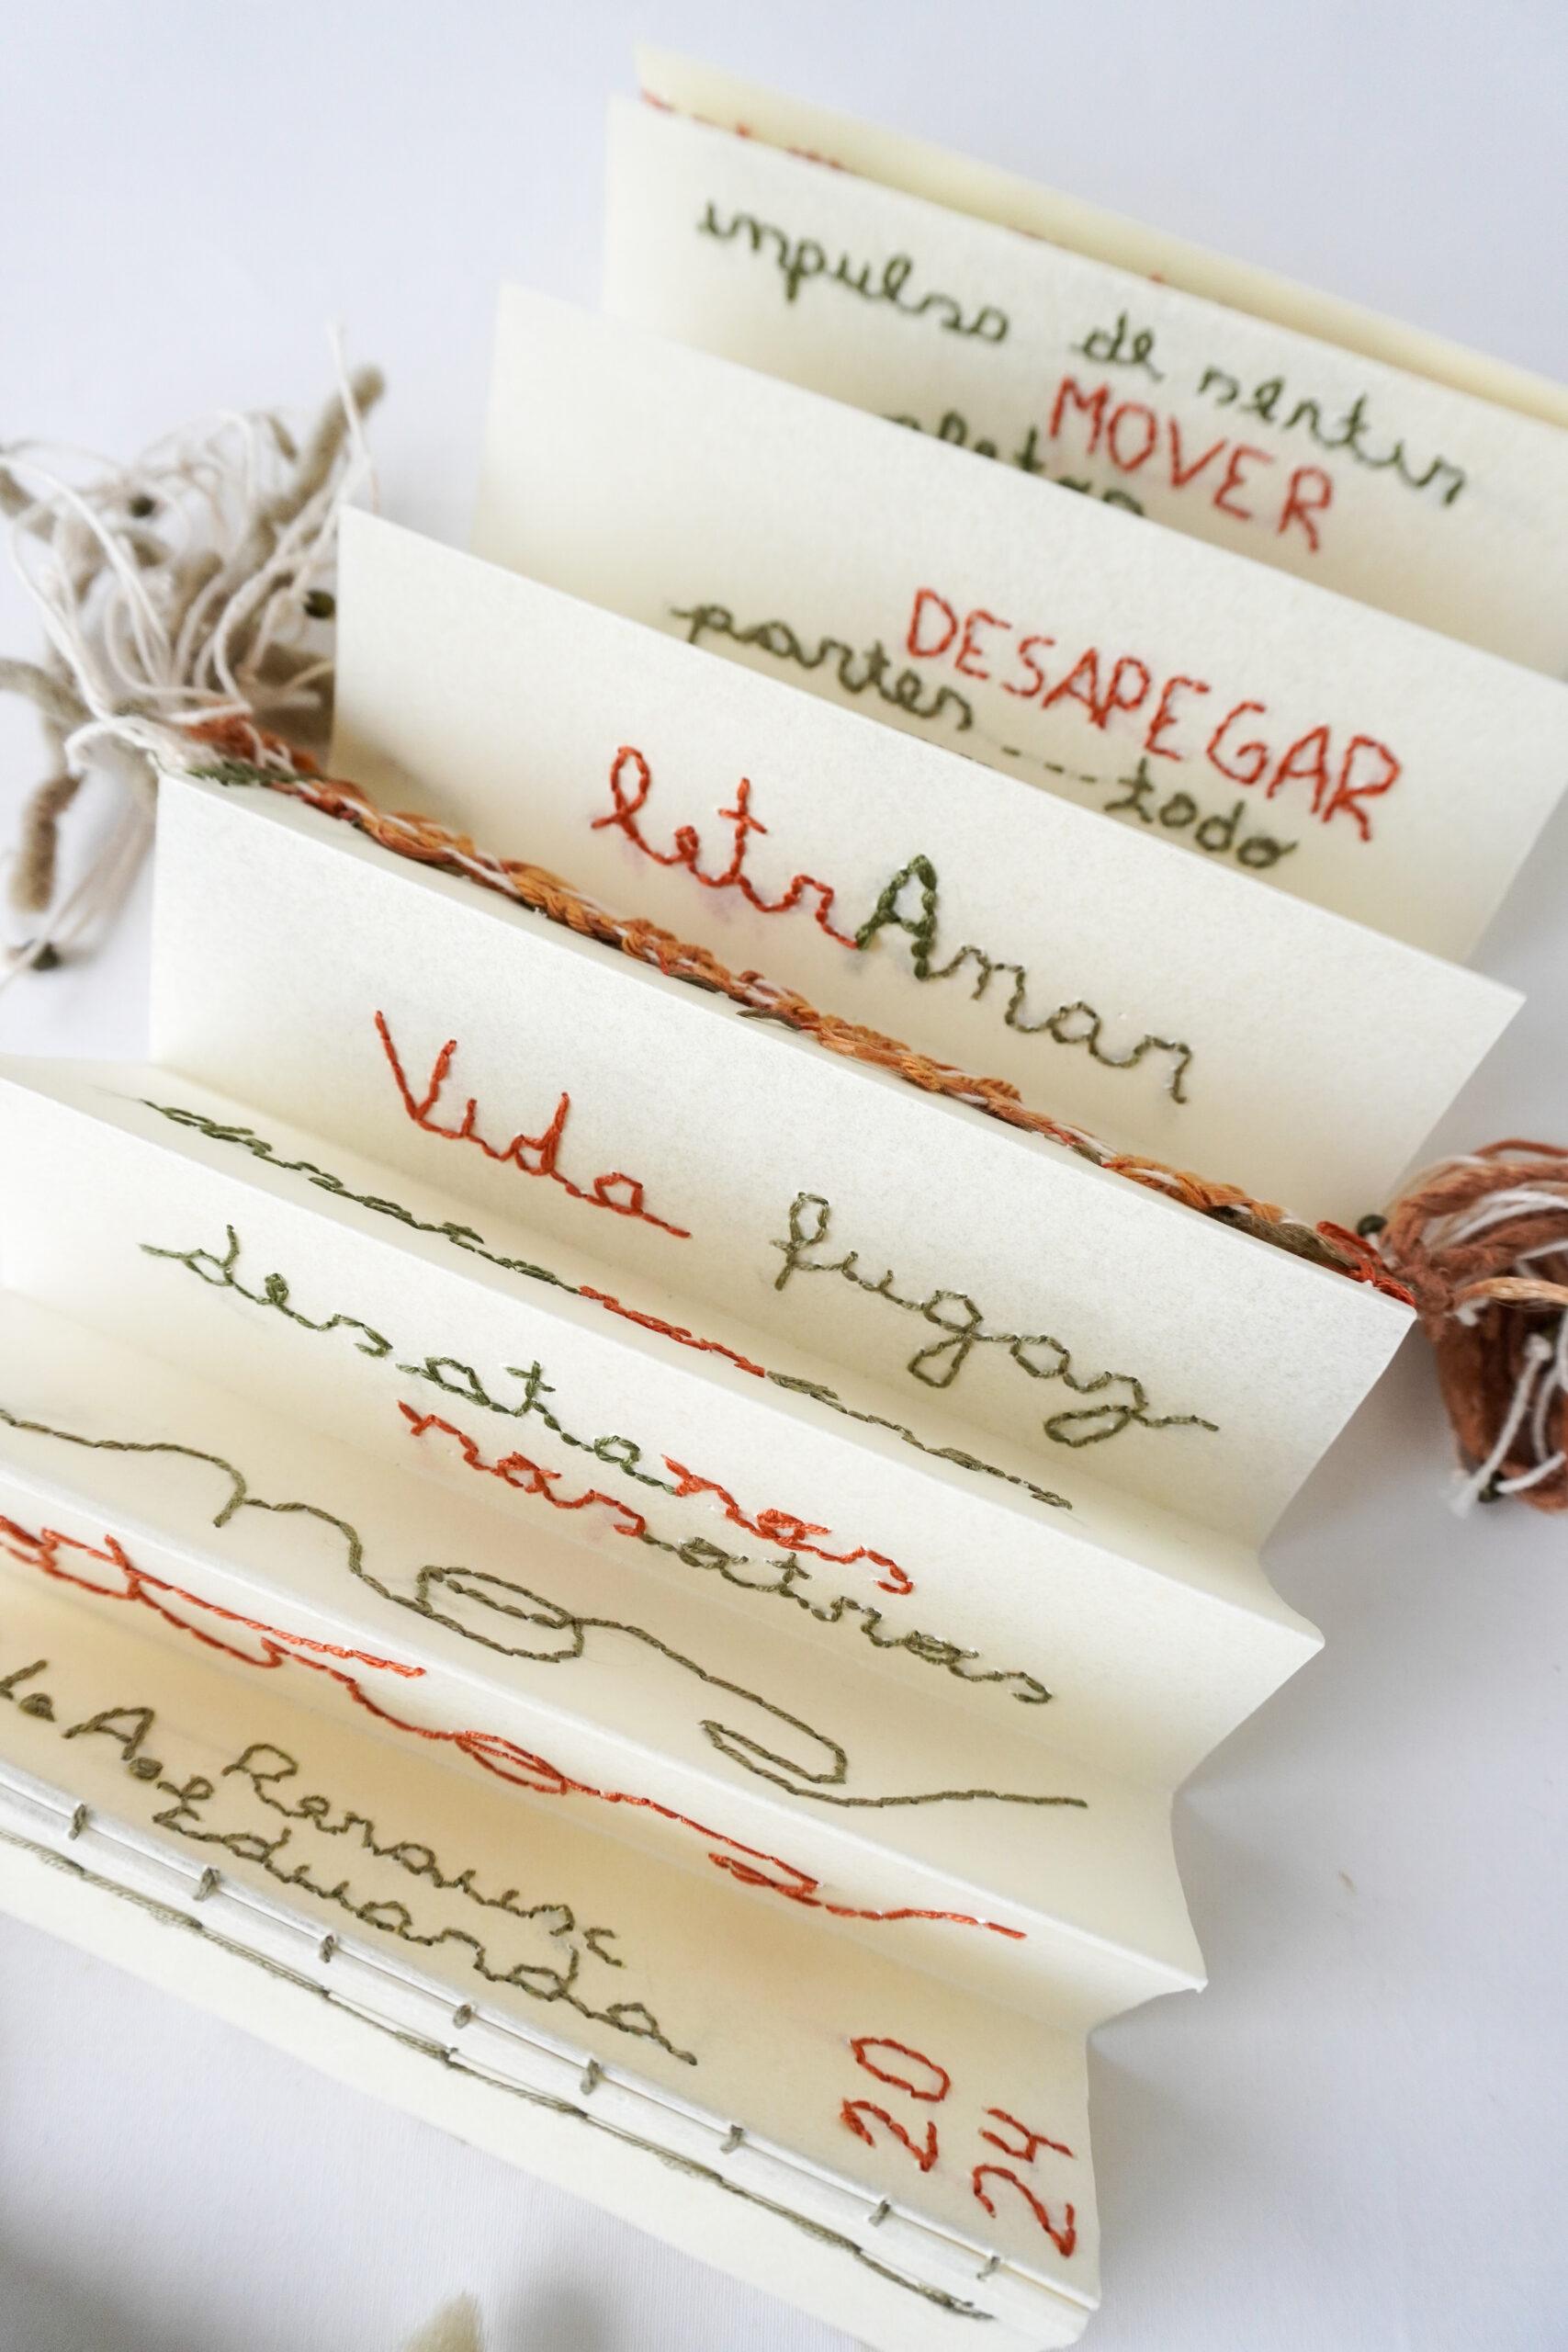 impulso de sentir
MOVER
DESAPEGAR
partes ---- todo
letrAmar
Vida fugaz
desatanos
nosotras
Eduarda
20
24